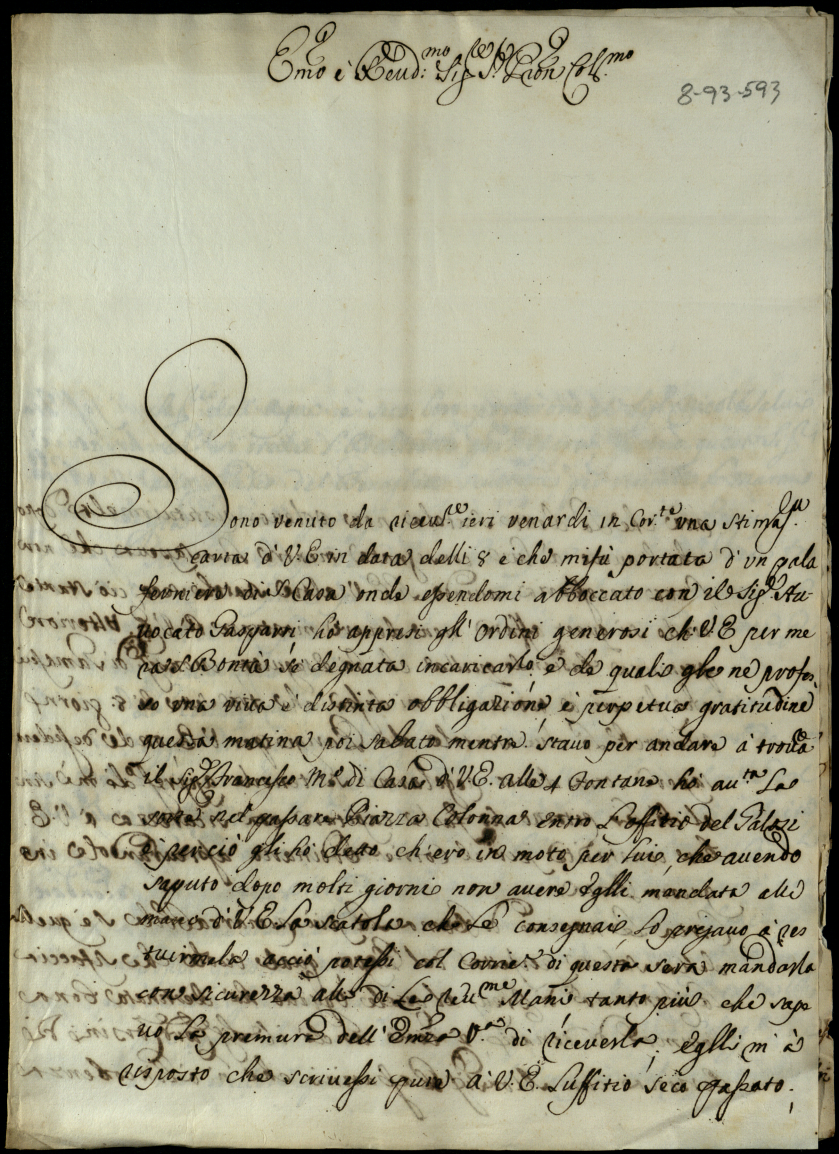 Emo è Reud:mo Sig.r Pron Coll.mo
8-93-593
Sono venuto da riceu.re ieri venardi in Cor.te vna stimas.ma
carta d'V.E in data delli 8 e che mi fù portata d'vn pala
freniero di S. Casa onde essendomi abboccato con il Sig.r Au-
uocato Gasparri hò appresi gl'Ordini generosi ch'V.E per me
ra S. Bontà s'è degnata incaricarlo, e de quali gle ne profes
so vna viua e distinta obbligazione, e perpetua gratitudine
questa matina poi sabato mentre stauo per andare à trouà
il Sig.r Francesco M.o di Casa d'V.E. alle 4 Fontane hò au.ta La
sorte nel passare Piazza Colonna entro L'offitio del Galosi
e perciò gli hò detto, ch'ero in moto per lui, che auendo
saputo dopo molti giorni non auere Eglli mandata alle
mani d'V.E La scatola che Le consegnai, Lo pregauo à res
tuirmela acciò potessi col Corrie.r di questa sera mandarla
con sicurezza alle di Lei Reu.me Mani tanto più che sape
uo La premura dell'Emza V.a di riceverla; Eglli m'à
risposto che scrivessi pure a V.E. L'uffitio seco passato.